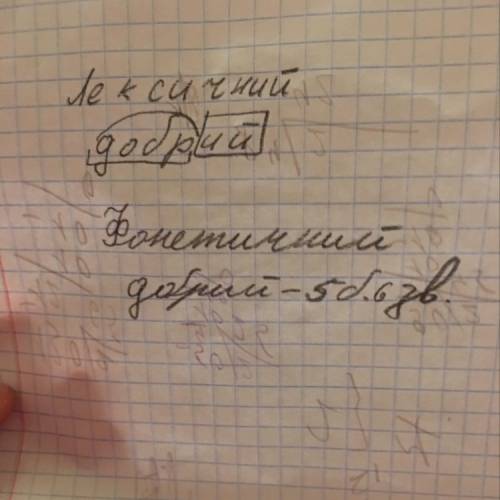 Лексичний
добрий
Фонетичний
добрий - 5 б. 6 зв.